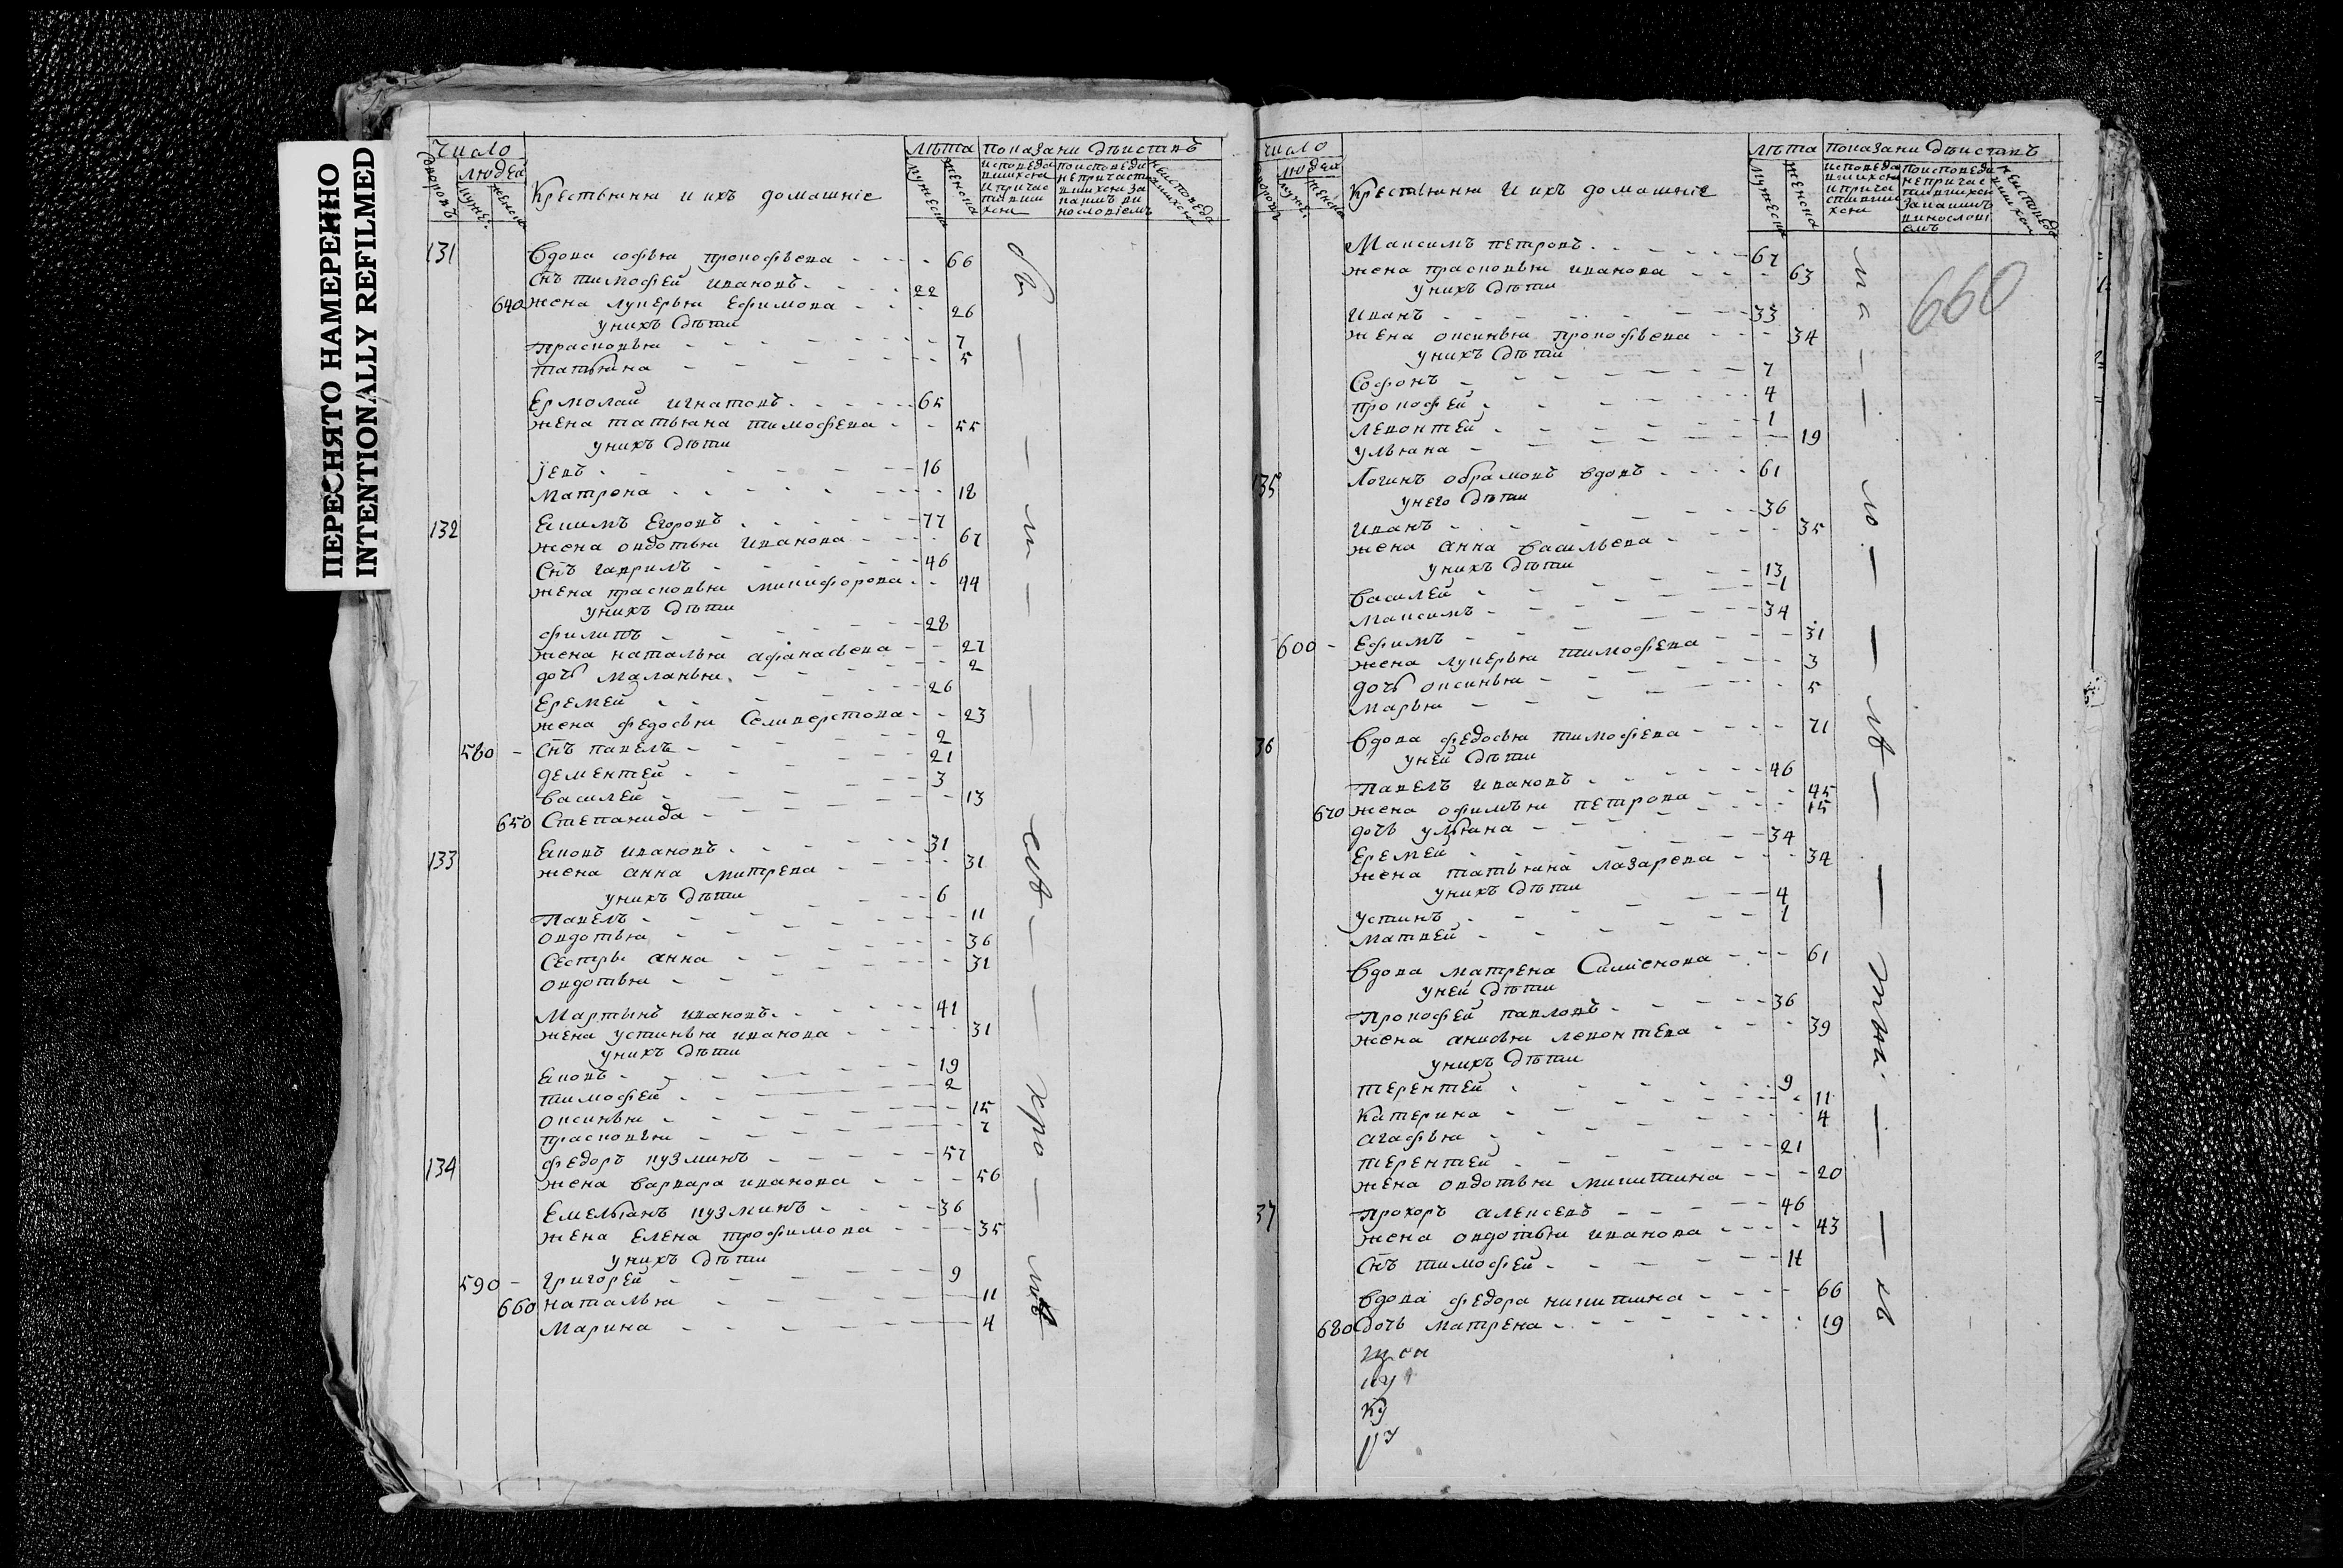 ПЕРЕСНЯТО НАМЕРЕННО
INTENTIONALLY REFILMED
Число
людей
дворовъ
мужес.
женска
Крестьяня и ихъ домашніе
лѣта
мужеска
женска
показани дѣиствъ
исповеда
вшихся
и причас
тивши
хся
поисповеди
непричасти
вшихся за
какимъ ви
нословіемъ
неисповеда
вшихся
131 Вдова софья прокофьева 66
Снъ тимофей ивановъ 22
640 жена лукерья Ефимова 26
унихъ дѣти
прасковья 7
татьяна 5
Ермолай игнатовъ 65
жена татьяна тимофева 55
унихъ дѣти
Иевъ 16
Матрона 18
132 Екимъ Егоровъ 77
жена овдотья Иванова 67
Снъ гаврилъ 46
жена прасковья микифорова 44
унихъ дѣти
филипъ 28
жена наталья афанасьева 27
дочь маланья 2
Еремей 26
жена федосья Селиверстова 23
580 Снъ павелъ 2
дементей 21
василей 3
650 Степанида 13
133 Яковъ ивановъ 31
жена анна митрева 31
унихъ дѣти
Павелъ 6
овдотья 11
Сестры анна 36
овдотья 31
Мартынъ ивановъ 41
жена устинья иванова 31
унихъ дѣти
Яковъ 19
тимофей 2
оксинья 15
прасковья 7
134 федоръ кузминъ 57
жена варвара иванова 56
Емельянъ кузминъ 36
жена Елена трофимова 35
унихъ дѣти
590 григорей 9
660 наталья 11
Марина 4
число
людей
дворовъ
мужес.
женска
Крестьяня и ихъ домашніе
лѣта
мужеска
женска
показани дѣиствъ
исповеда
вшихся
и прича
стивши
хся
поисповеди
непричас
тившихся
За какимъ
винослові
емъ
неисповеда
вшихся
660
Максимъ петровъ 67
жена прасковья иванова 63
унихъ дѣти
Иванъ 33
жена оксинья прокофьева 34
унихъ дѣти
Софонъ 7
прокофей 4
левонтей 1
ульяна 19
135 Логинъ обрамовъ вдовъ 61
унего дѣти
Иванъ 36
жена анна васильева 35
унихъ дѣти
василей 13
Максимъ 1
600 Ефимъ 34
жена лукерья тимофева 31
дочь оксинья 3
Марья 5
36 Вдова федосья тимофева 71
уней дѣти
Павелъ ивановъ 46
670 жена офимья петрова 45
дочь ульяна 15
Еремей 34
жена татьяна лазарева 34
унихъ дѣти
устинъ 4
Матвей 1
Вдова матрена Симіенова 61
уней дѣти
Прокофей павловъ 36
жена анисья левонтева 39
унихъ дѣти
терентей 9
Катерина 11
агафья 4
терентей 21
жена овдотья микитина 20
37 Прохоръ алексевъ 46
жена овдотья иванова 43
Снъ тимофей 11
Вдова федора никитина 66
680 дочь матрена 19
ку